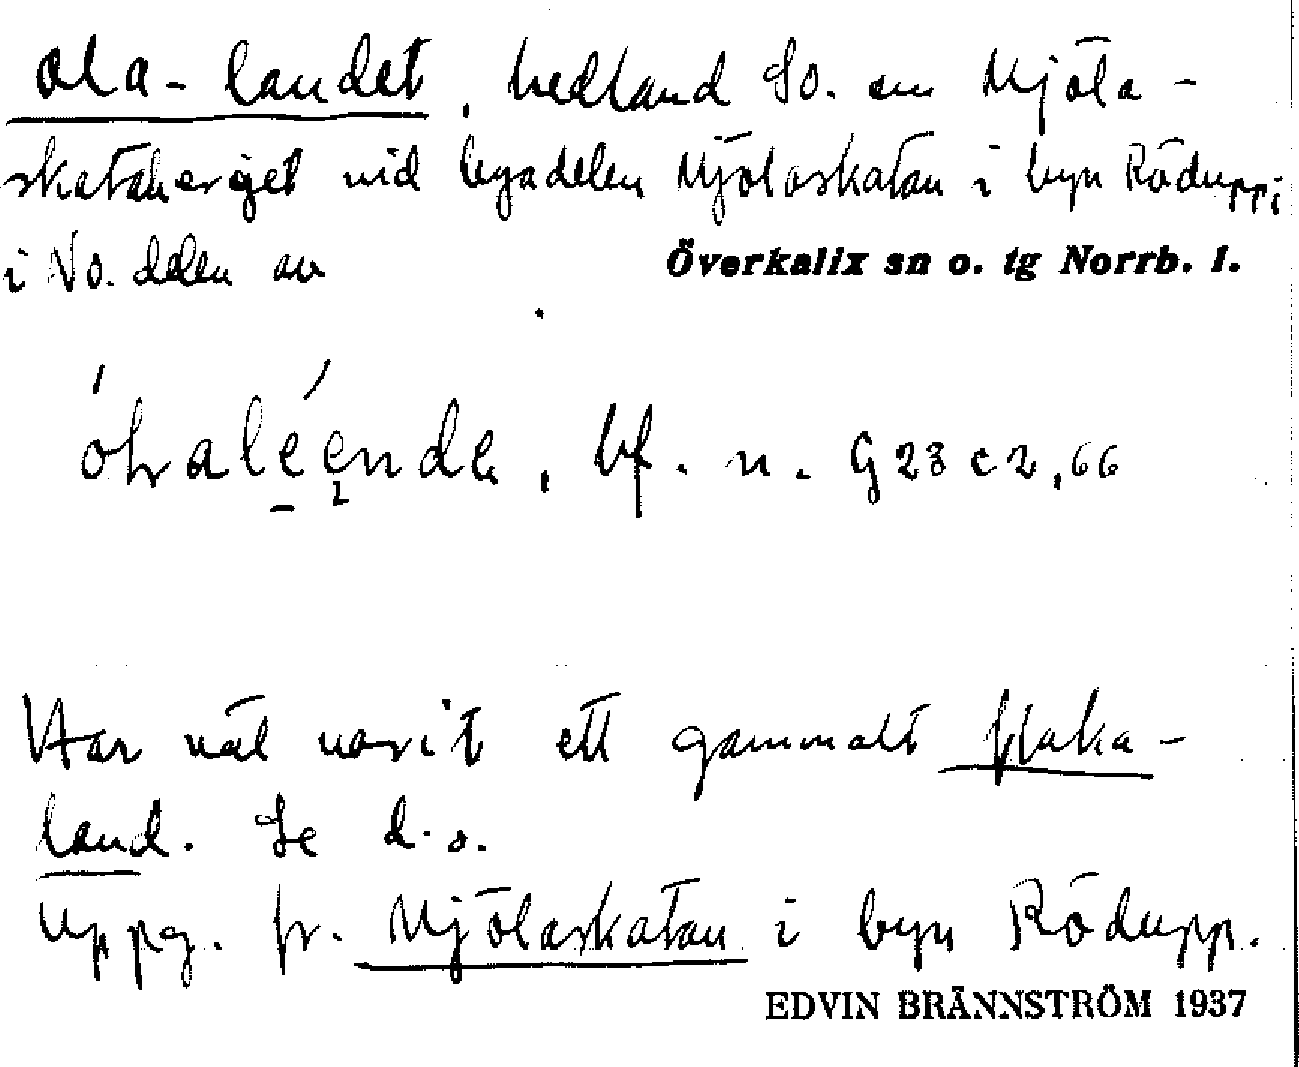 ola-landet, hedland So. om Mjöla-
skataberget vid byadelen Mjölaskatan i byn Rödupp i
i No. delen av Överkalix sn o. tg Norrb. l.
bf. n. G 23 c 2, 66
Har väl varit ett gammalt flaka-
land. Se d. o.
Uppg. fr. Mjölaskatan i byn Rödupp.
EDVIN BRÄNNSTRÖM 1937